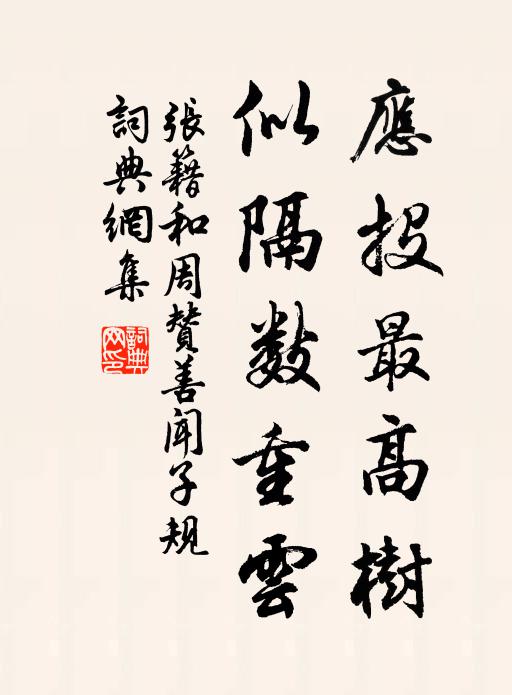 應投最高樹
似隔數重雲
張籍和周贊善聞子規
詞典網集
詞典网印